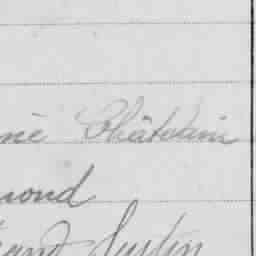 né Châtelain
mond
and Justin